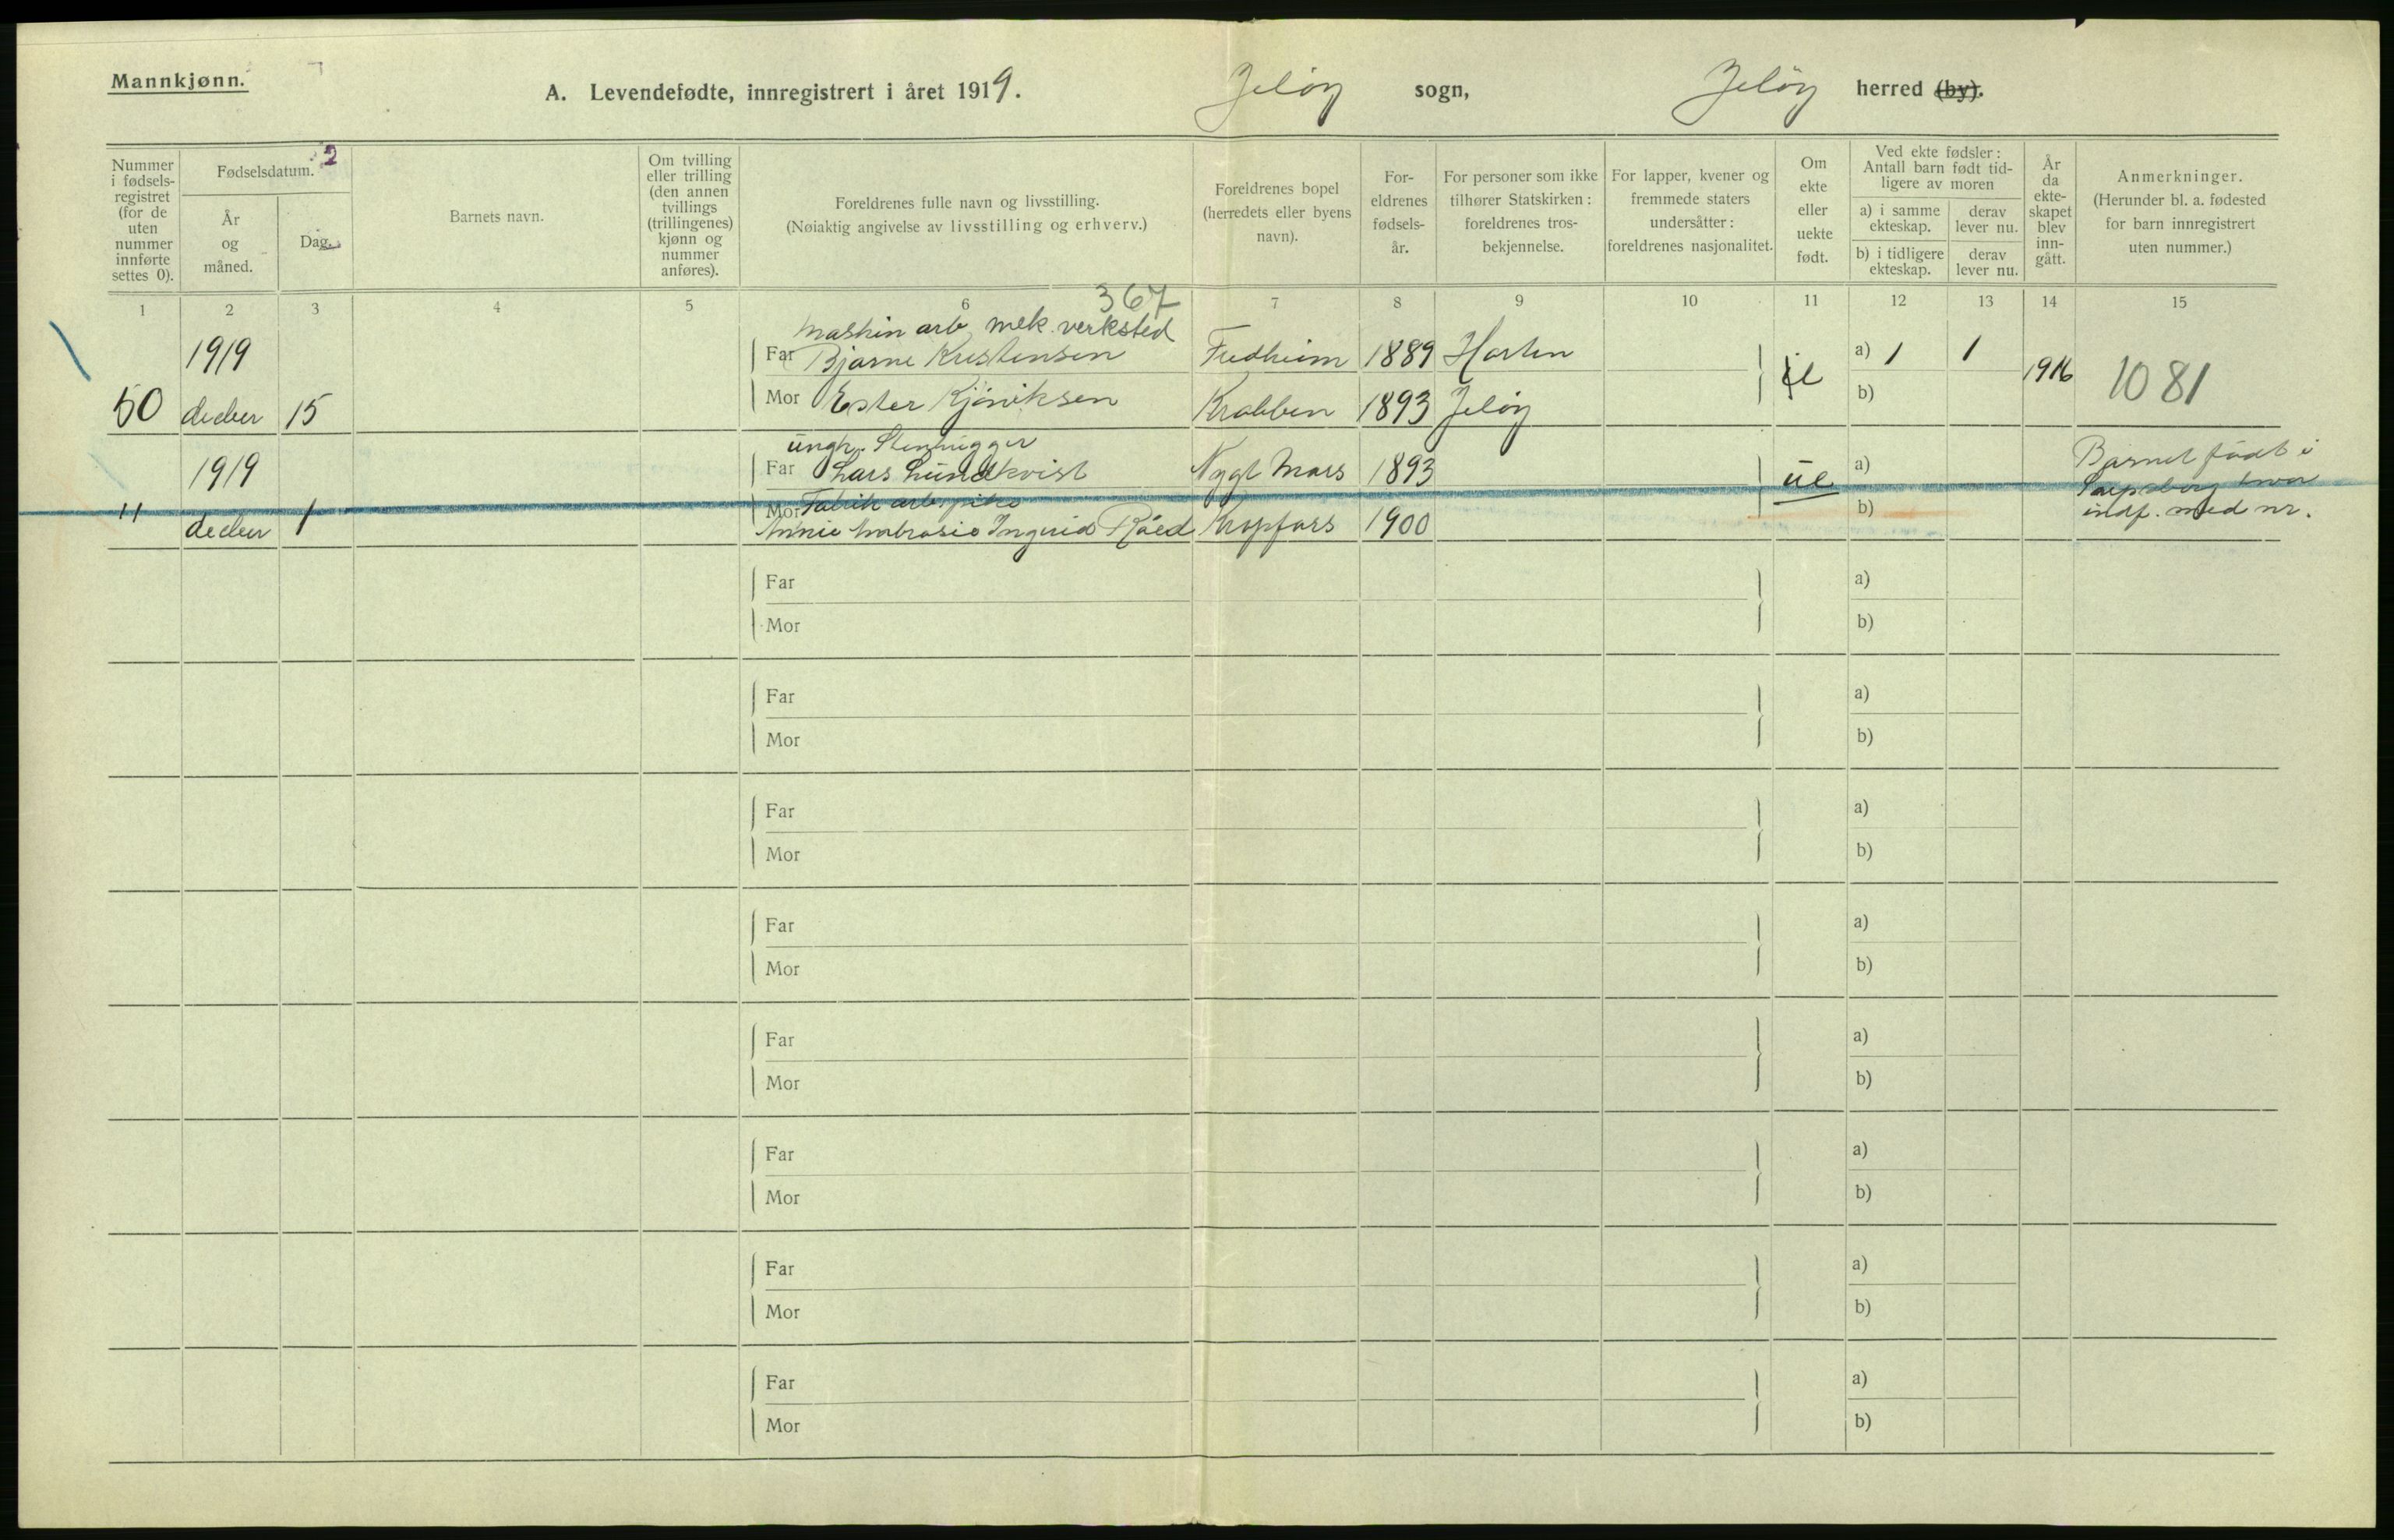 Mannkjønn.
A. Levendefødte, innregistrert i året 1919.
Jeløy sogn,
Jeløy herred (by).
Nummer i fødsels-registret (for de uten nummer innførte settes 0).
Fødselsdatum. 2
År og måned.
Dag.
Barnets navn.
Om tvilling eller trilling (den annen tvillings (trillingenes) kjønn og nummer anføres).
Foreldrenes fulle navn og livsstilling.
(Nøiaktig angivelse av livsstilling og erhverv.)
Foreldrenes bopel (herredets eller byens navn).
For-eldrenes fødsels-år.
For personer som ikke tilhører Statskirken: foreldrenes tros-bekjennelse.
For lapper, kvener og fremmede staters undersåtter: foreldrenes nasjonalitet.
Om ekte eller uekte født.
Ved ekte fødsler: Antall barn født tid-ligere av moren
a) i samme ekteskap.
derav lever nu.
b) i tidligere ekteskap.
derav lever nu.
År da ekte-skapet blev inn-gått.
Anmerkninger.
(Herunder bl. a. fødested for barn innregistrert uten nummer.)
1 2 3 4 5 6 7 8 9 10 11 12 13 14 15
367
Maskin arb mek. verksted
1919 Far Bjarne Kristensen 1889 Horten a) 1 1
50 decber 15 Mor Ester Krabben 1893 Jeløy b) 1916 1081
ungk. Stenhugger
1919 Far Lars Lundkvist Mars 1893 ue a) Barnet født i
Mor Fabrik arb. pike b) Sarpsborg hvor
" decber 1 Ingrid Råed 1900 indf. med nr.
Far a)
Mor b)
Far a)
Mor b)
Far a)
Mor b)
Far a)
Mor b)
Far a)
Mor b)
Far a)
Mor b)
Far a)
Mor b)
Far a)
Mor b)